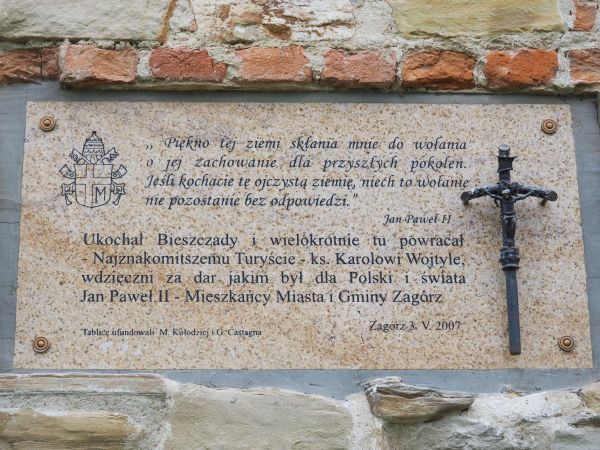 ,, Piękno tej ziemi skłania mnie do wołania
o jej zachowanie dla przyszłych pokoleń.
Jeśli kochacie tę ojczystą ziemię, niech to wołanie
nie pozostanie bez odpowiedzi.”
Jan Paweł II
Ukochał Bieszczady i wielokrotnie tu powracał
- Najznakomitszemu Turyście - ks. Karolowi Wojtyle,
wdzięczni za dar jakim był dla Polski i świata
Jan Paweł II - Mieszkańcy Miasta i Gminy Zagórz
Tablicę ufundowali M. Kołodziej i G. Castagna
Zagórz 3. V. 2007
M